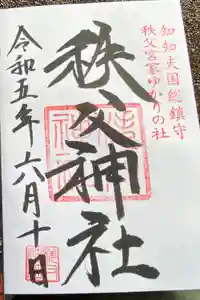 知知夫国総鎮守
秩父宮家ゆかりの社
秩父神社
令和五年六月十日